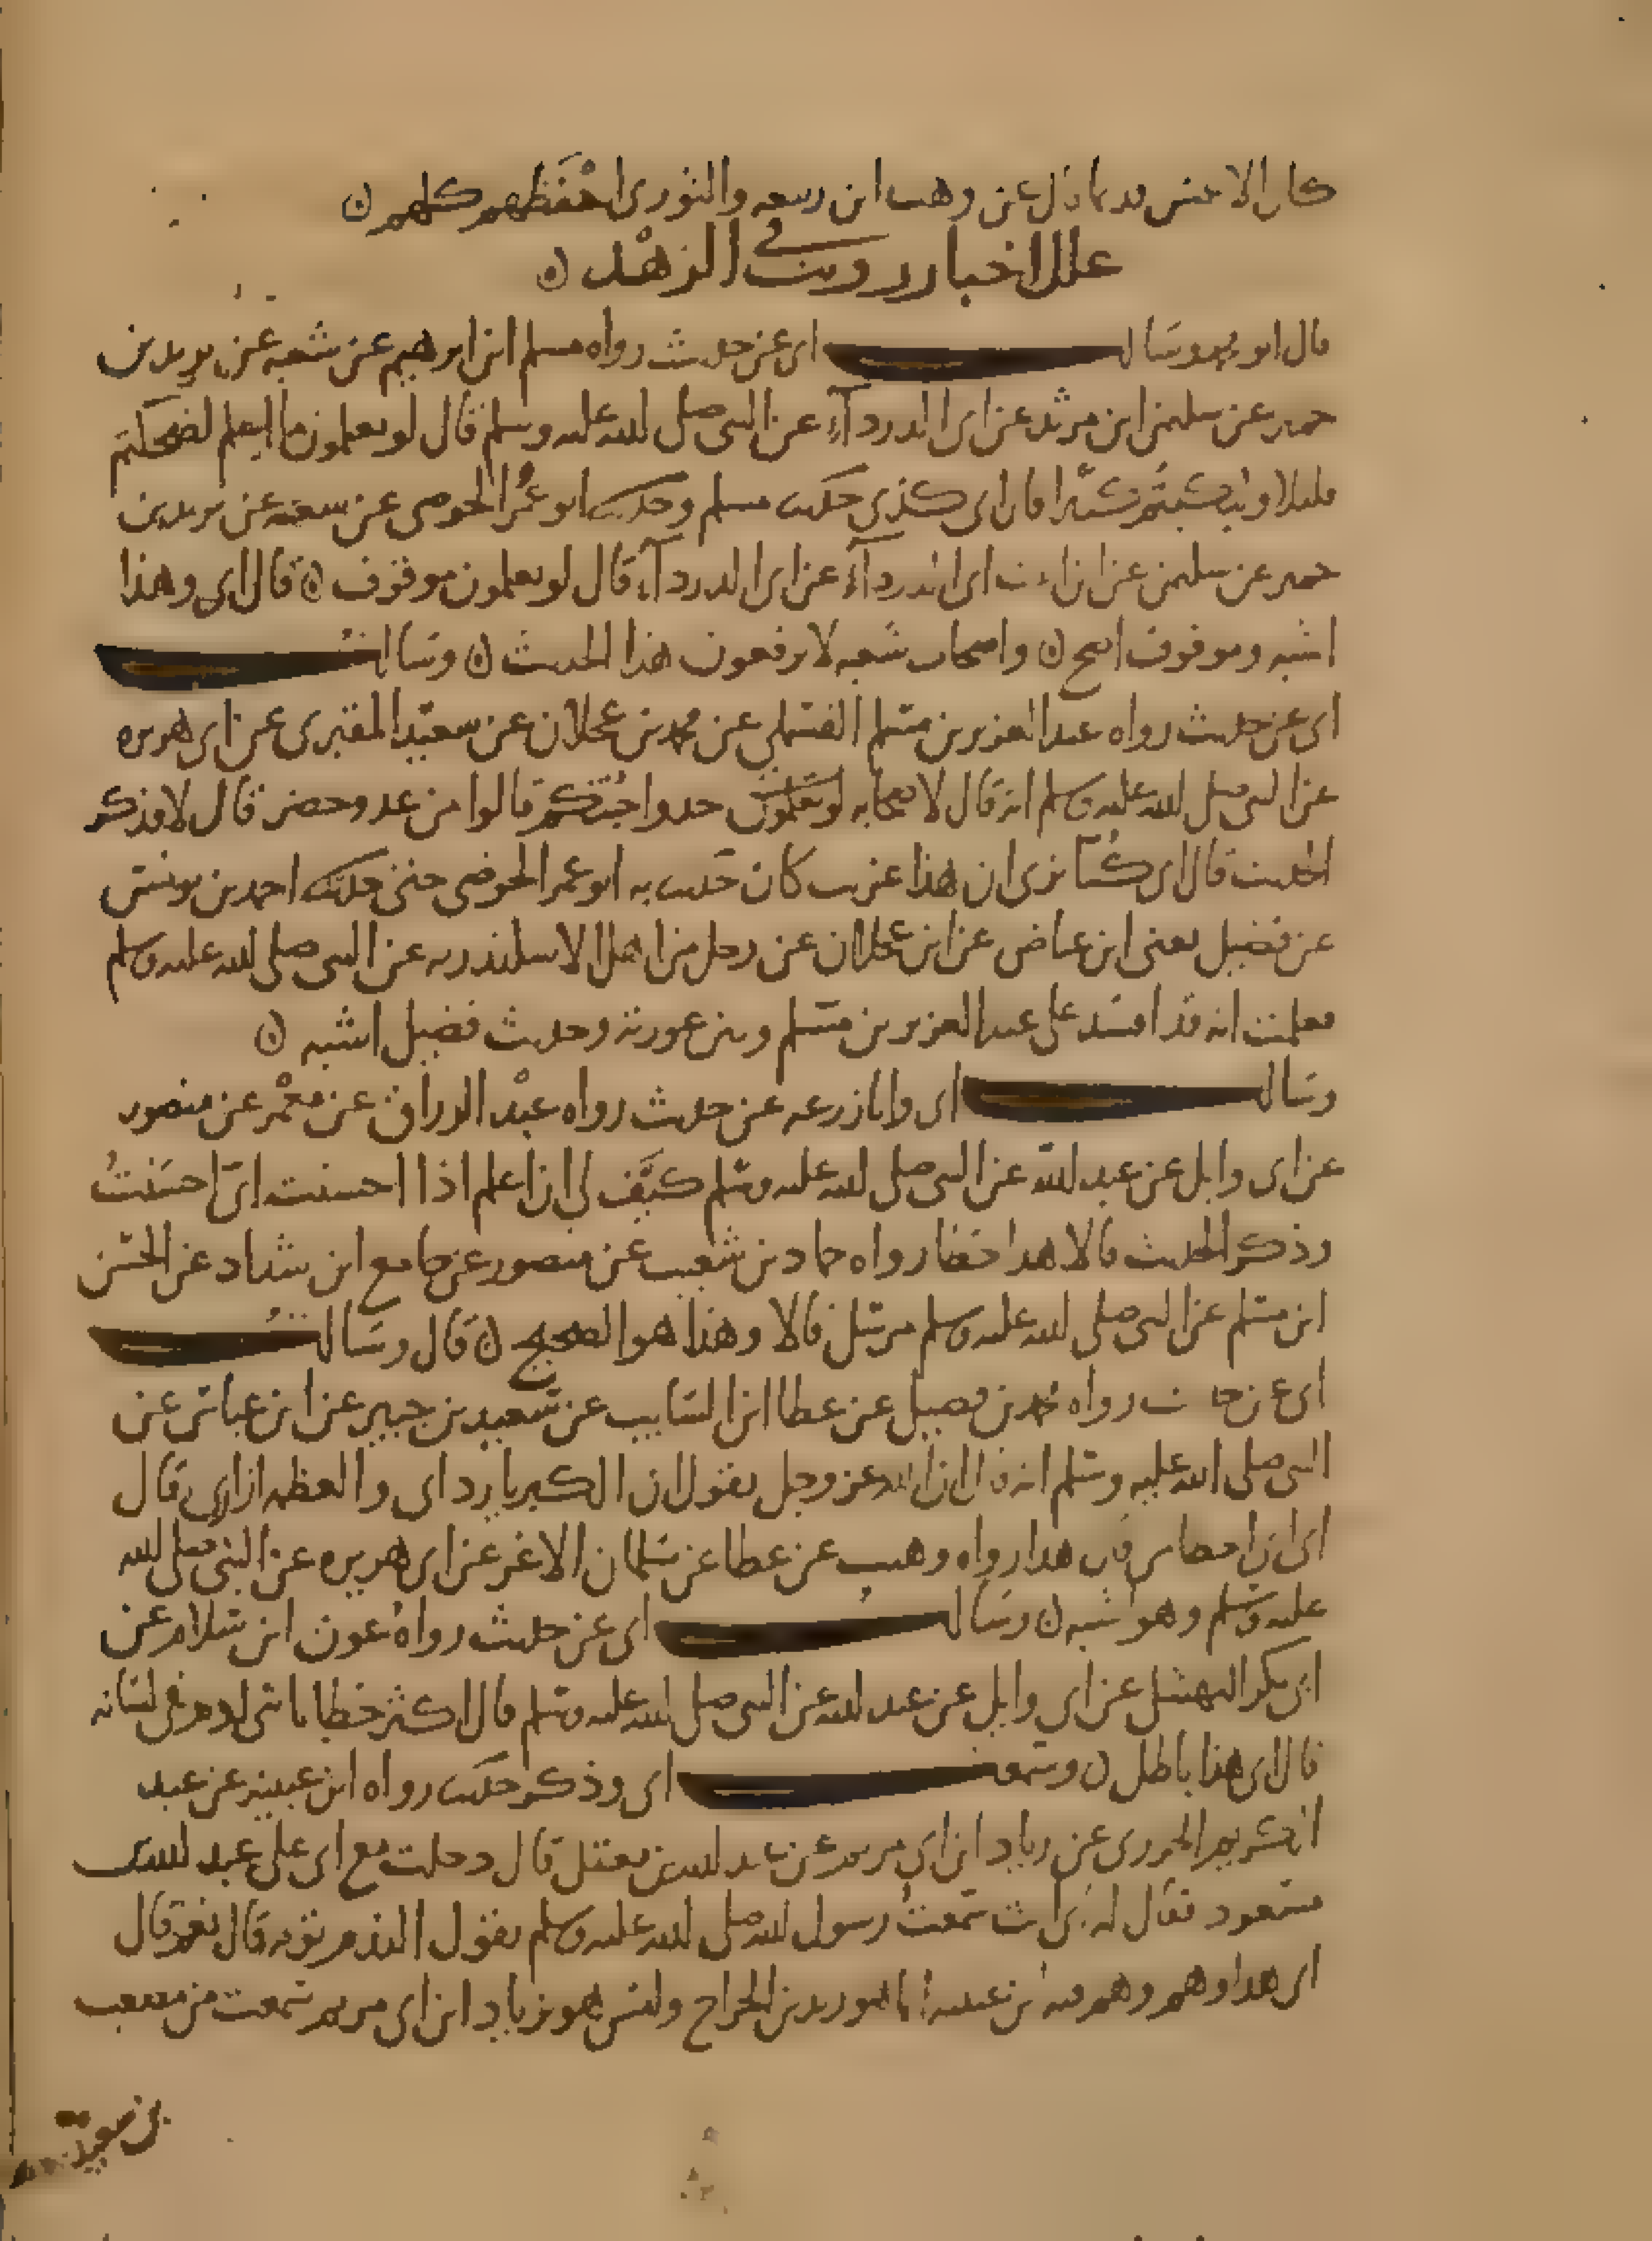 كان الاعمش قديما قال عن وهب ابن ربيعه والثوري احفظهم كلهم ه
علل اخبار رويت في الزهد ه
قال ابو محمد وسالت ابي عن حديث رواه مسلم ابن ابرهيم عن شعبه عن يزيد بن
خمير عن سليمن ابن مرثد عن ابي الدرداء عن النبي صلى الله عليه وسلم قال لو تعلمون ما اعلم لضحكتم
قليلا ولبكيتم كثيرا قال ابي كذي حدثنا مسلم وحدثنا ابو عمر الحوضي عن شعبه عن يزيد بن
خمير عن سليمن عن ابن ابنت ابي الدرداء عن ابي الدرداء قال لو تعلمون موقوف ه قال ابي وهذا
اشبه وموقوف اصح ه واصحاب شعبه لا يرفعون هذا الحديث ه وسالت
ابي عن حديث رواه عبد العزيز بن مسلم القسملي عن محمد بن عجلان عن سعيد المقبري عن ابي هريره
عن النبي صلى الله عليه وسلم انه قال لاصحابه خدوا جنتكم قالوا من عدو حضر قال لا فذكر
الحديث قال ابي كنا نرى ان هذا غريب كان حدثنا به ابو عمر الحوضي حتى حدثنا احمد بن يونس
عن فضيل يعني ابن عياض عن ابن عجلان عن رجل من اهل الاسكندريه عن النبي صلى الله عليه وسلم
فعلمت انه قد افسد على عبد العزيز بن مسلم وبين عورته وحديث فضيل اشبه ه
وسالت ابي وابا زرعه عن حديث رواه عبد الرزاق عن معمر عن منصور
عن ابي وايل عن عبد الله عن النبي صلى الله عليه وسلم كيف لي ان اعلم اذا احسنت اني احسنت
وذكر الحديث قالا هدا خطا رواه حماد بن شعيب عن منصور عن جامع ابن شداد عن الحسن
ابن مسلم عن النبي صلى الله عليه وسلم مرسل قالا وهذا هو الصحيح ه قال وسالت
ابي عن حديث رواه محمد بن فضيل عن عطا ابن السايب عن سعيد بن جبير عن ابن عباس عن
النبي صلى الله عليه وسلم انه قال ان الله عز وجل يقول ان الكبريا رداي والعظمه ازاري قال
ابي اخطا ابن فضيل هدا رواه وهيب عن عطا عن سلمان الاغر عن ابي هريره عن النبي صلى الله
عليه وسلم وهو اشبه ه وسالت ابي عن حديث رواه عون ابن سلام عن
ابي بكر النهشلي عن ابي وايل عن عبد الله عن النبي صلى الله عليه وسلم قال اكثر خطايا بني ادم في لسانه
قال ابي هذا باطل ه وسمعت ابي وذكر حديث رواه ابن عيينه عن عبد
الكريم الجزري عن زياد ابن ابي مريم عن عبد الله بن معقل قال دخلت مع ابي على عبد الله بن
مسعود فقال له ابي انت سمعت رسول الله صلى الله عليه وسلم يقول الندم توبه قال نعم قال
ابي هدا وهم وهم فيه ابن عيينه انما هو زياد بن الجراح وليس هو بزياد ابن ابي مريم سمعت من مصعب
بن سعيد